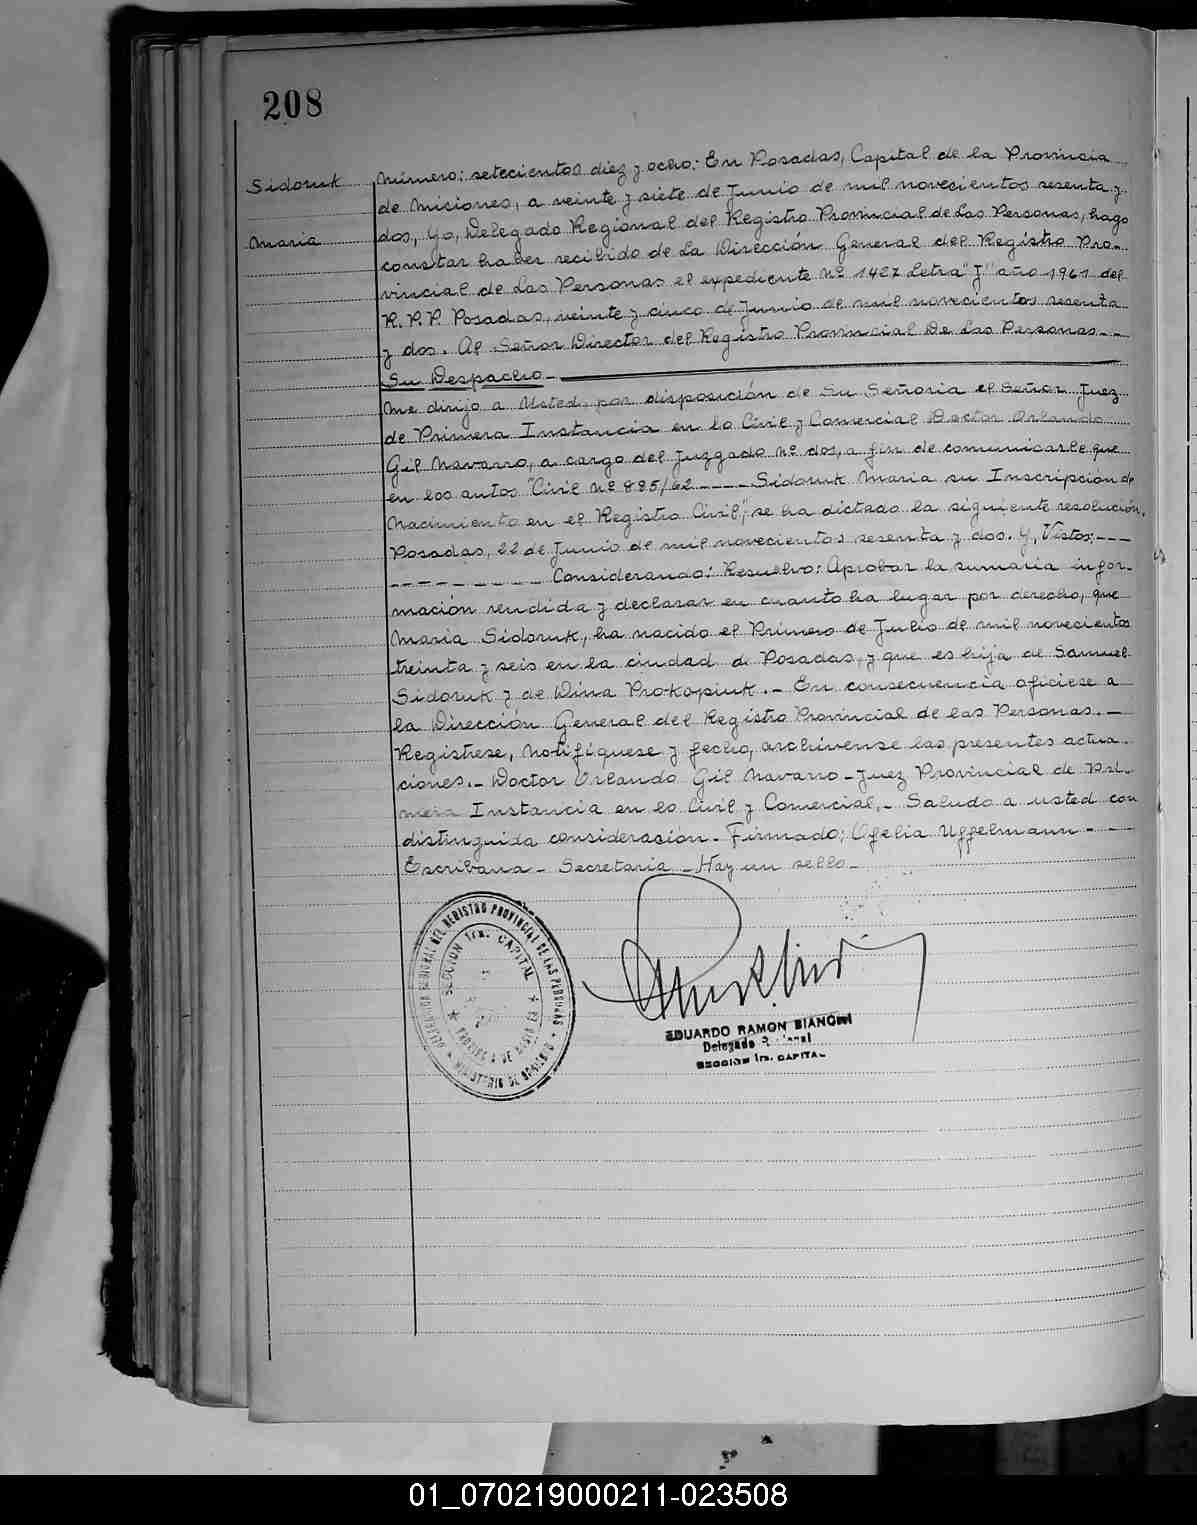 208
Sidoruk
Maria
Número: setecientos diez y ocho: En Posadas, Capital de la Provincia
de Miciones, a veinte y siete de Junio de mil novecientos sesenta y
dos, Yo, Delegado Regional del Registro Provincial de Las Personas, hago
constar haber recibido de La Dirección General del Registro Pro-
vincial de Las Personas el expediente Nº 1427 Letra "J" año 1961 del
R.P.P. Posadas, veinte y cinco de Junio de mil novecientos sesenta
y dos. Al Señor Director del Registro Provincial De Las Personas--
Su Despacho-
Me dirijo a Usted, por disposición de Su Señoria el Señor Juez
de Primera Instancia en lo Civil y Comercial Doctor Orlando
Gil Navarro, a cargo del Juzgado Nº dos, a fin de comunicarle que
en los autos "Civil Nº 885/62 ---- Sidoruk Maria su Inscripción de
Nacimiento en el Registro Civil", se ha dictado la siguiente resolución.
Posadas, 22 de Junio de mil novecientos sesenta y dos. Y, Vistos;---
--------- Considerando: Resuelvo: Aprobar la sumaria infor-
mación rendida y declarar en cuanto ha lugar por derecho, que
Maria Sidoruk, ha nacido el Primero de Julio de mil novecientos
treinta y seis en la ciudad de Posadas, y que es hija de Samuel
Sidoruk y de Dina Prokopiuk.- En consecuencia ofíciese a
la Dirección General del Registro Provincial de las Personas.-
Regístrese, Notifíquese y fecho, archívense las presentes actua-
ciones.- Doctor Orlando Gil Navarro - Juez Provincial de Pri-
mera Instancia en lo Civil y Comercial.- Saludo a usted con
distinguida consideración. Firmado; Ofelia Uffelmann - --
Escribana - Secretaria - Hay un sello-
DELEGACION REGIONAL DEL REGISTRO PROVINCIAL DE LAS PERSONAS
SECCION 1ra. CAPITAL
MINISTERIO DE GOBIERNO
EDUARDO RAMON BIANCHI
Delegado Regional
SECCION 1ra. CAPITAL
01_070219000211-023508